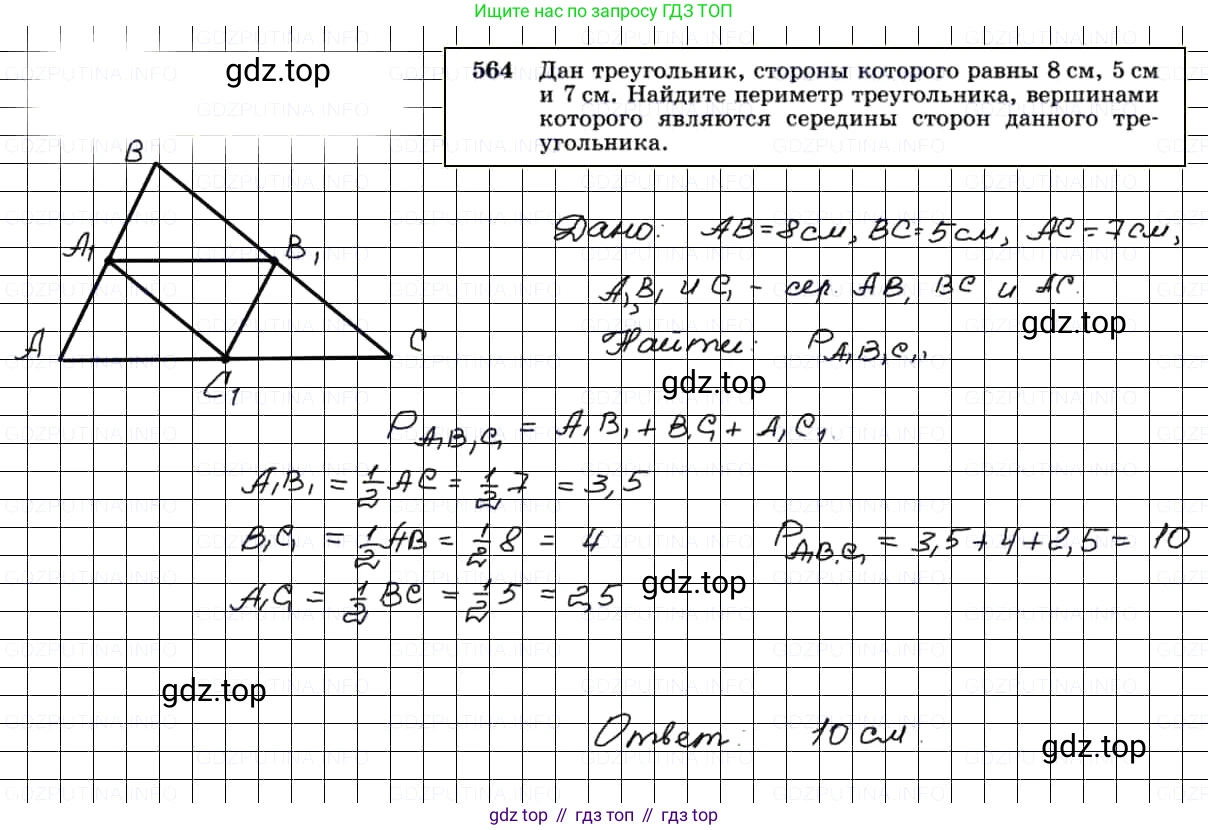 Ищите нас по запросу ГДЗ ТОП
gdz.top
564 Дан треугольник, стороны которого равны 8 см, 5 см
и 7 см. Найдите периметр треугольника, вершинами
которого являются середины сторон данного тре-
угольника.
B
A₁
B₁
A
C
C₁
Дано: AB = 8 см, BC = 5 см, AC = 7 см,
A₁, B₁ и C₁ - сер. AB, BC и AC.
gdz.top
Найти: P A₁B₁C₁.
gdz.top
P A₁B₁C₁ = A₁B₁ + B₁C₁ + A₁C₁.
A₁B₁ = 1/2 AC = 1/2 7 = 3,5
B₁C₁ = 1/2 AB = 1/2 8 = 4
P A₁B₁C₁ = 3,5 + 4 + 2,5 = 10
A₁C₁ = 1/2 BC = 1/2 5 = 2,5
gdz.top
gdz.top
Ответ: 10 см.
gdz.top
gdz.top // гдз топ // gdz top
GDZPUTINA.INFO